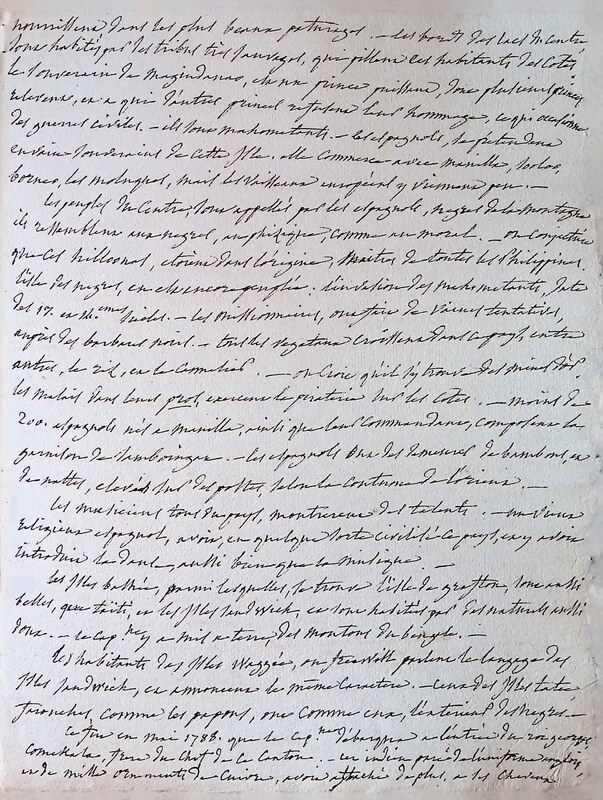 nourrissent dans les plus beaux paturages. — les bords des lacs du Centre,
sont habités par les tribus très sauvages, qui pillent les habitants des Cotes.
le souverain de magindanao, est un prince puissant, dont plusieurs princes
relevent, et a qui d'autres princes refusent leur hommage, ce qui occasionne
des guerres civiles. — ils sont mahometants. — les espagnols, se pretendent
souverains de cette Isle. elle Commerce avec manilla, Solos,
borneo, les moluques, mais les vaisseaux européens y viennent peu. —
les peuples du Centre, sont appellés par les espagnols, negres de la montagne
ils ressemblent aux negres, au phisique, comme au moral. — on Conjecture
que ces étoient dans l'origine, maitres de toutes les Philippines.
l'isle des negres, en est encore peuplée. l'invasion des mahometants, date
des siecles. — les missionnaires, ont fait de vaines tentatives,
auprès des barbares noirs. — tous les vegetaux Croissent dans ce pays, entre
autres, le riz, et la Canelle. — on Croit qu'il s'y trouve des mines d'or.
les malais dans leurs pros, exercent le piraterie sur les Cotes. — moins de
200. espagnols nés a manilla, ainsi que leur Commandant, composent la
garnison de Samboingan. — les espagnols ont des demeures de bambous, et
de nattes, elevées sur des postes, selon la Coutume de l'orient. —
les musiciens tous du pays, montrerent des talents. — un vieux
religieux espagnol, avoit, en quelque sorte civilisé ce pays, en y avoit
introduit la danse, aussi bien que la musique. —
les Isles bashées, parmi lesquelles, se trouve l'isle de grafton, sont aussi
belles, que taiti, et les Isles sandwich, et sont habitées par des naturels aussi
doux. — le cap.ne y a mis a terre, des moutons du bengale. —
Les habitants des Isles Waggée, ou freewill parlent le langage des
Isles sandwich, et annoncent le même Caractere. — ceux des Isles tate
farouches, comme les papous, ont comme eux, l'exterieur des negres —
Ce fut en mai 1788. que le Cap.ne debarqua a l'entrée du roi george
Comekala, frere du Chef de ce Canton. — cet indien paré de l'uniforme anglois,
et de mille ornements de Cuivre, avoit attaché de plus, a ses Cheveux